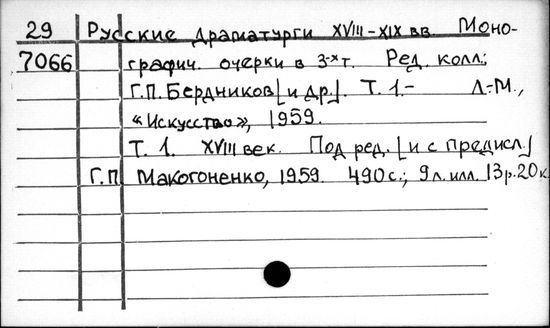 29 Русские драматурги XVIII-XIX вв. Моно-
7066 графич. очерки в 3-х т. Ред. колл:
Г.П. Бердников [и др]. Т. 1.- Л.-М.,
«Искусство», 1959.
Т. 1. XVIII век. Под ред. [и с предисл.]
Г.П. Макогоненко, 1959. 490 с.; 9 л. илл. 13 р. 20 к